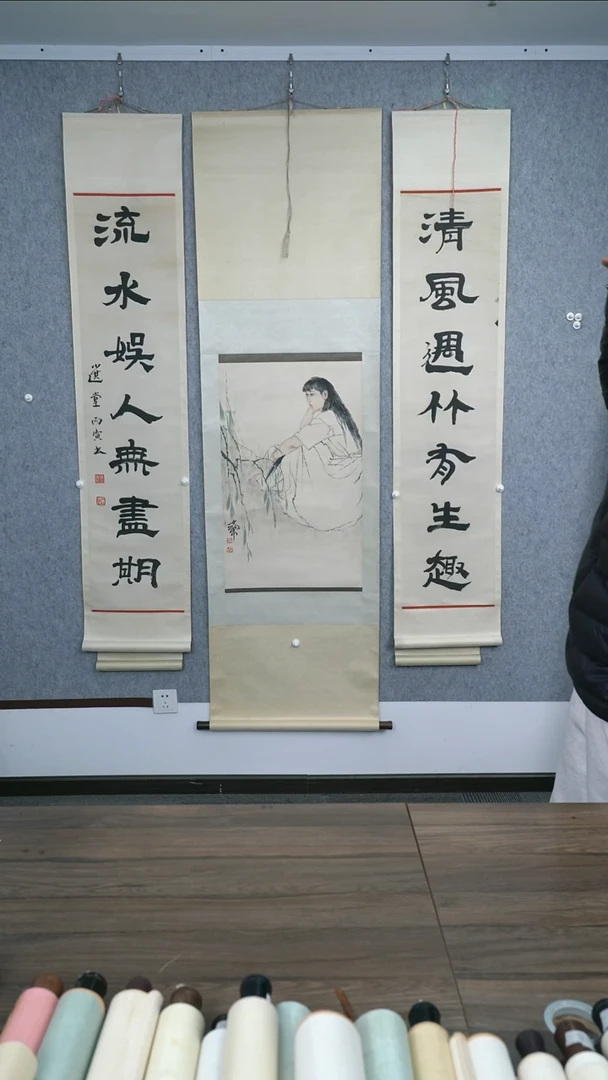 清風過竹有生趣
流水娛人無盡期
選堂丙寅